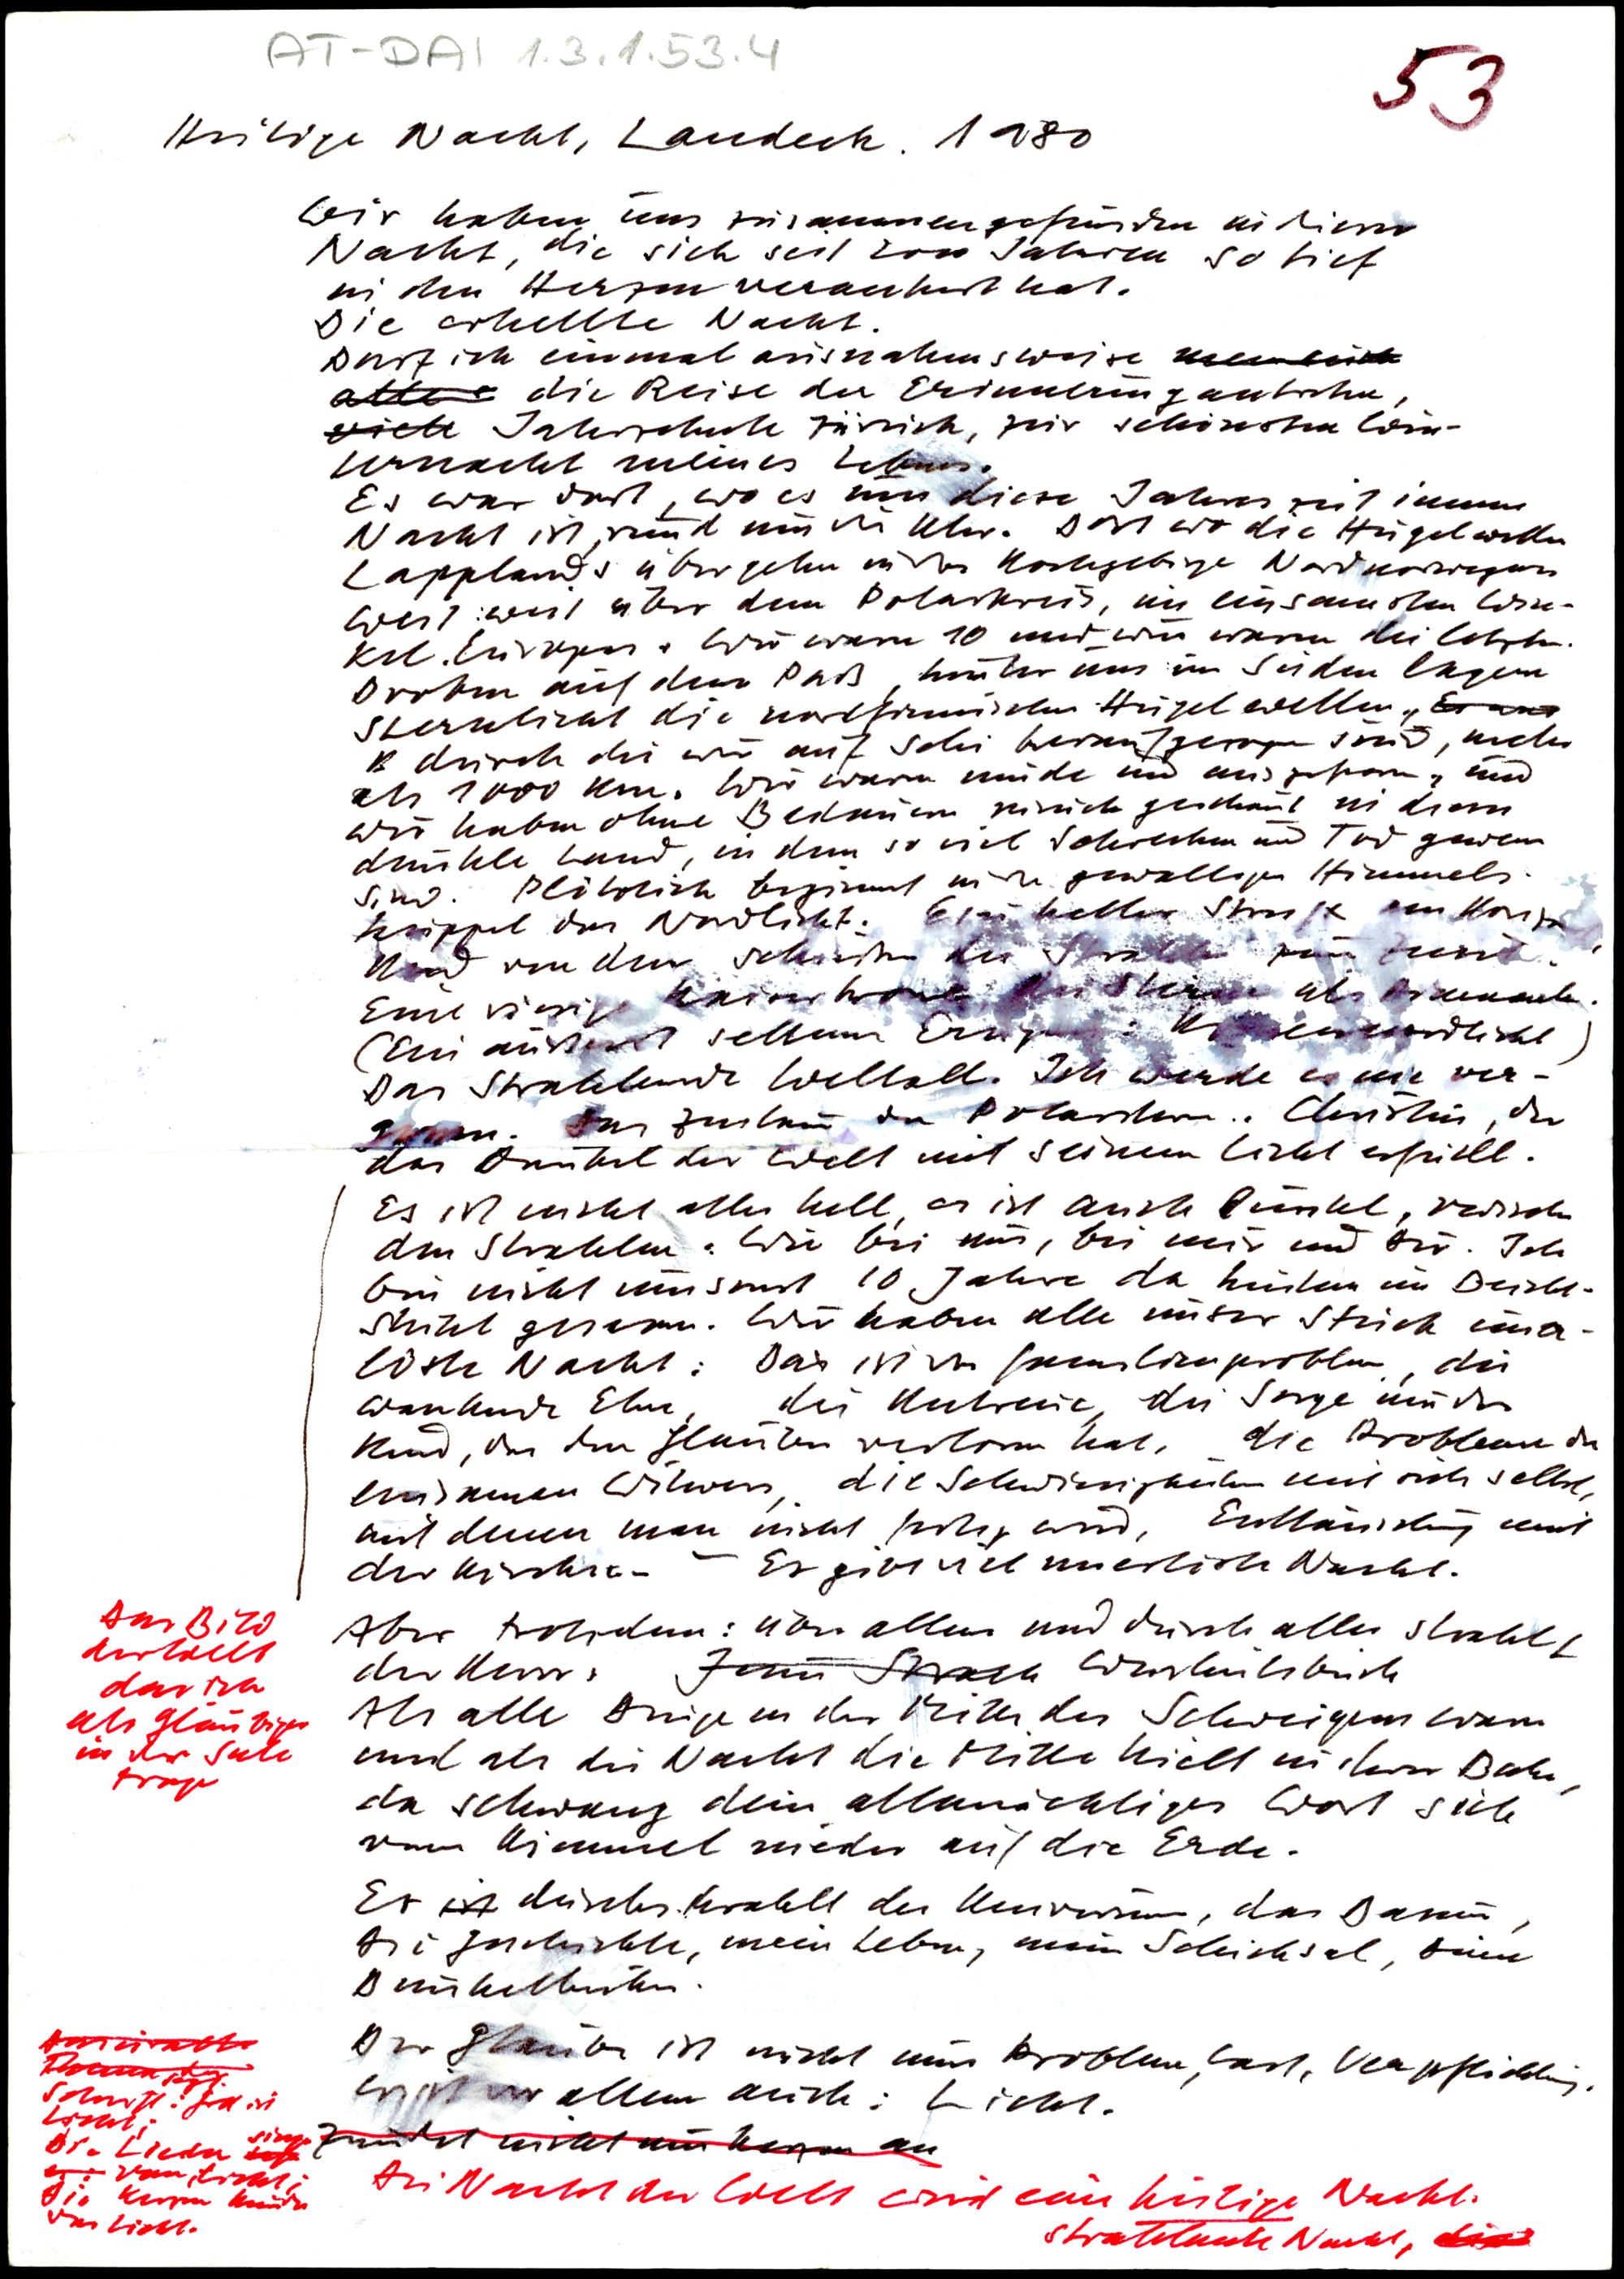 AT-DAI 1.3.1.53.4
53
Heilige Nacht, Landeck. 1980
Wir haben uns zusammengefunden in dieser
Nacht, die sich seit 2000 Jahren so tief
in den Herzen verankert hat.
Die erhellte Nacht.
Darf ich einmal ausnahmsweise
alle die Reise der Erinnerung antreten,
viele Jahrzehnte zurück, zur schönsten Win-
ternacht meines Lebens.
Es war dort, wo es um diese Jahreszeit immer
Nacht ist, rund um die Uhr. Dort wo die Hügelwellen
Lapplands übergehen in das Hochgebirge Nordnorwegens
weit weit über dem Polarkreis, im einsamsten Win-
kel Europas. Wir waren 10 und wir waren die letzten.
Droben auf dem Paß, hinter uns im Süden lagen
Sternlicht die nordfinnischen Hügelwellen, Es war
durch die wir auf Schi heraufgezogen sind, mehr
als 1000 km. Wir waren müde und ausgefroren, und
wir haben ohne Bedauern zurück geschaut in dieses
dunkle Land, in dem so viel Schrecken und Tod gewesen
sind. Plötzlich beginnt in der gewaltigen Himmels-
kuppel das Nordlicht. Ein heller Streifen am Horizont
Und von dem schießen die Strahlen zum Zenit.
Eine riesige Kaiserkrone, die Sterne als Diamanten.
(Ein äußerst seltenes Ereignis: Kronennordlicht)
Das Strahlende Weltall. Ich werde es nie ver-
gessen. Das Zentrum der Polarstern.. Christus, der
das Dunkel der Welt mit seinem Licht erfüllt.
Es ist nicht alles hell, es ist auch Dunkel, zwischen
den Strahlen. Wie bei uns, bei mir und dir. Ich
bin nicht umsonst 10 Jahre da hinten im Beicht-
stuhl gesessen. Wir haben alle unser Stück uner-
löste Nacht: Das ist das Familienproblem, die
wankende Ehe, die Untreue, die Sorge um das
Kind, das den Glauben verloren hat, die Probleme des
einsamen Witwers, die Schwierigkeiten mit sich selbst,
mit denen man nicht fertig wird, Enttäuschung mit
der Kirche.- Es gibt viel unerlöste Nacht.
Das Bild
der Welt
das ich
als Gläubiger
in der Seele
trage
Aber trotzdem: über allem und durch alles strahlt
der Herr: Jesus Sirach Weisheitsbuch
Als alle Dinge in der Mitte des Schweigens waren
und als die Nacht die Mitte hielt in ihrer Bahn,
da schwang dein allmächtiges Wort sich
vom Himmel nieder auf die Erde.
Er ist durchstrahlt das Universum, das Dasein,
die Geschichte, mein Leben, mein Schicksal, deine
Dunkelheiten.
Der Glaube ist nicht nur Problem, Last, Verpflichtung.
Er ist vor allem auch: Licht.
Schrift: Gott ist
Licht;
Die Lieder singen
von Licht;
Die Kerzen künden
das Licht.
Zündet nicht nur Kerzen an
Die Nacht der Welt wird eine heilige Nacht.
strahlende Nacht, die